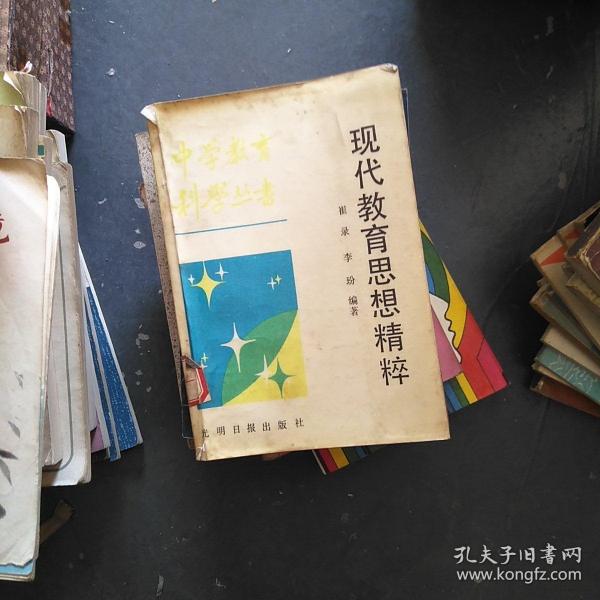 中学教育
科学丛书
现代教育思想精粹
崔录 李玢 编著
光明日报出版社
孔夫子旧书网
www.kongfz.com